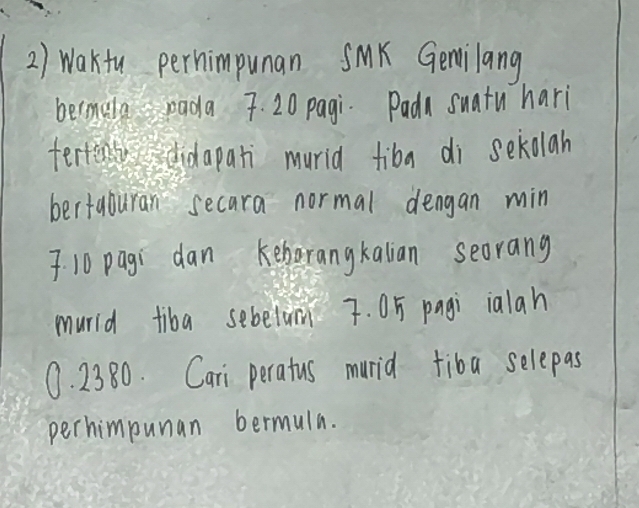 2) Waktu perhimpunan SMK Gemilang
bermula pada 7.20 pagi. Pada suatu hari
tertentu didapati murid tiba di sekolah
bertaburan secara normal dengan min
7.10 pagi dan kebarangkalian seorang
murid tiba sebelum 7.05 pagi ialah
0.2380. Cari peratus murid tiba selepas
perhimpunan bermula.